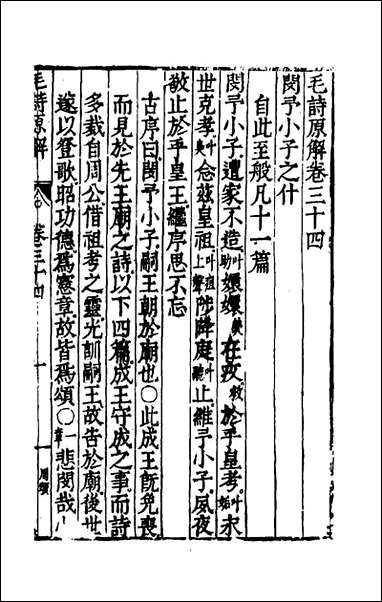 毛詩原解卷三十四
閔予小子之什
自此至般凡十一篇
閔予小子遭家不造助嬛嬛在疚救於乎皇考叶永
世克孝叶念茲皇祖叶徂上聲陟降庭叶聽止維予小子夙夜
敬止於乎皇王繼序思不忘
古序曰閔予小子嗣王朝於廟也○此成王旣免喪
而見於先王廟之詩以下四篇成王守成之事而詩
多載自周公借祖考之靈光訓嗣王故告於廟後世
遂以登歌昭功德爲憲章故皆爲頌○一章悲閔哉
毛詩原解
卷三十四
一
周頌